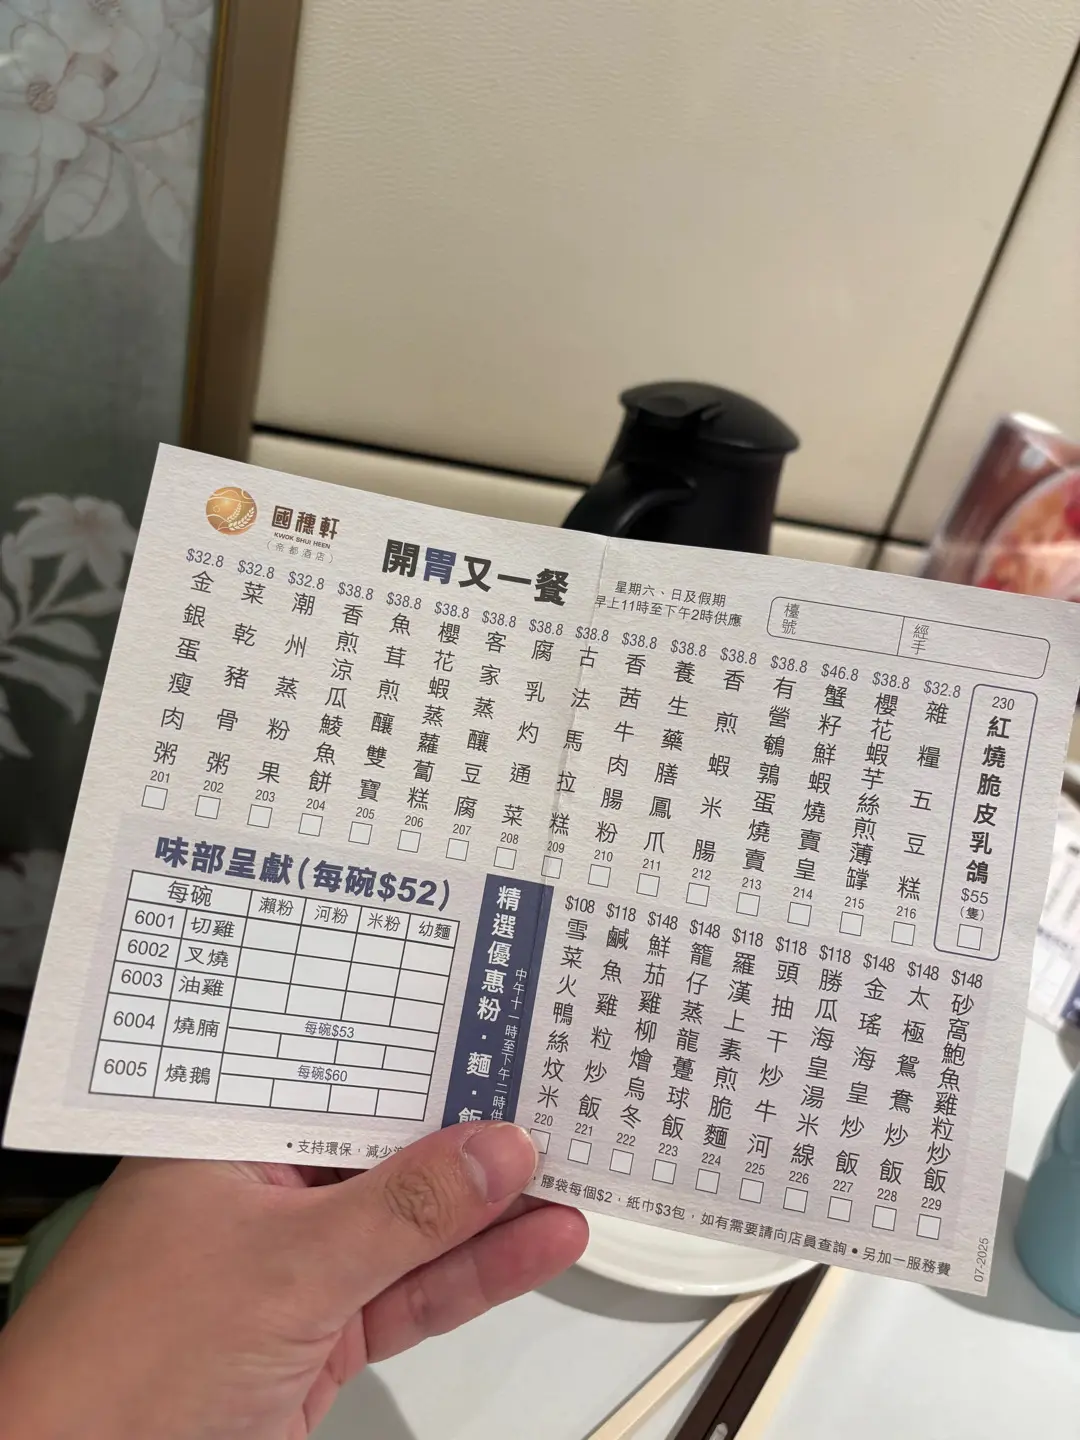 國穗軒
KWOK SHUI HEEN
(帝都酒店)
開胃又一餐
星期六、日及假期
早上11時至下午2時供應
檯號
經手
$32.8 金銀蛋瘦肉粥 201
$32.8 菜乾豬骨粥 202
$32.8 潮州蒸粉果 203
$38.8 香煎涼瓜鯪魚餅 204
$38.8 魚茸煎釀雙寶 205
$38.8 櫻花蝦蒸蘿蔔糕 206
$38.8 客家蒸釀豆腐 207
$38.8 腐乳灼通菜 208
$38.8 古法馬拉糕 209
$38.8 香茜牛肉腸粉 210
$38.8 養生藥膳鳳爪 211
$38.8 香煎蝦米腸 212
$38.8 有營鵪鶉蛋燒賣 213
$46.8 蟹籽鮮蝦燒賣皇 214
$38.8 櫻花蝦芋絲煎薄罉 215
$32.8 雜糧五豆糕 216
230
紅燒脆皮乳鴿
$55
(隻)
味部呈獻(每碗$52)
每碗 瀨粉 河粉 米粉 幼麵
6001 切雞
6002 叉燒
6003 油雞
6004 燒腩 每碗$53
6005 燒鵝 每碗$60
精選優惠粉．麵．飯
中午十一時至下午二時供
$108 雪菜火鴨絲炆米 220
$118 鹹魚雞粒炒飯 221
$148 鮮茄雞柳燴烏冬 222
$148 籠仔蒸龍躉球飯 223
$118 羅漢上素煎脆麵 224
$118 頭抽干炒牛河 225
$118 勝瓜海皇湯米線 226
$148 金瑤海皇炒飯 227
$148 太極鴛鴦炒飯 228
$148 砂窩鮑魚雞粒炒飯 229
•支持環保，減少
膠袋每個$2，紙巾$3包，如有需要請向店員查詢•另加一服務費
07-2025